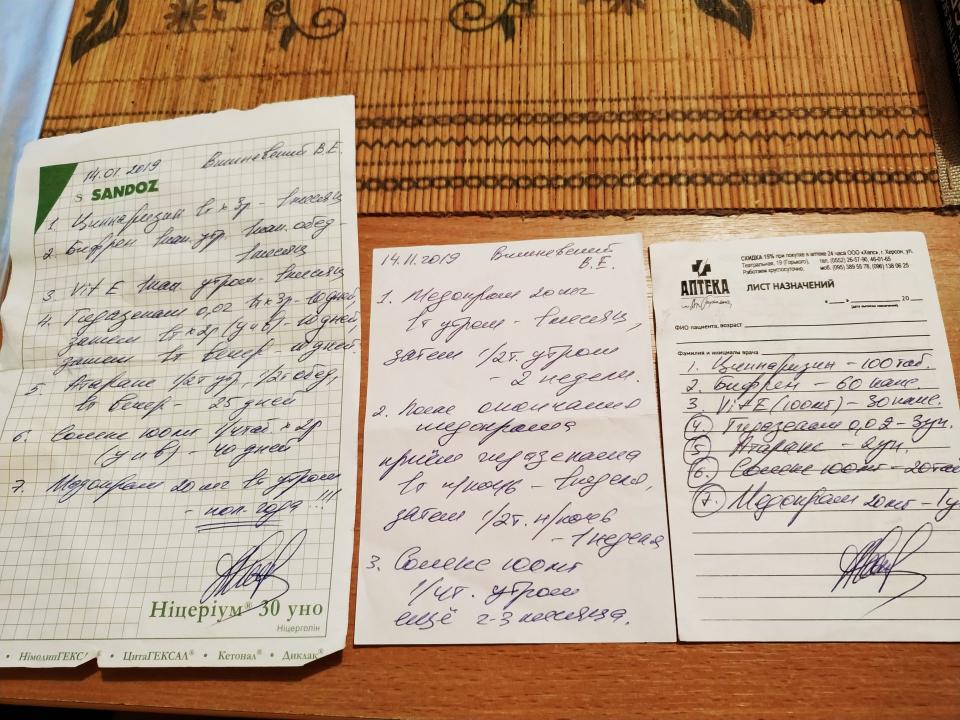 14.01.2019 Вишневский В.Е.
S SANDOZ
1. Циннаризин 1т × 3р - 1 месяц
2. Бифрен 1кап. утр. 1кап. обед -
1 месяц
3. Vit E 1кап утром - 1 месяц
4. Гидазепам 0,02 1т × 3р - 10 дней,
затем 1т × 2р (у и в) - 10 дней,
затем 1т вечер - 10 дней.
5. Атаракс 1/2т утр, 1/2т обед,
1т вечер - 25 дней
6. Солекс 100мг 1/4таб. × 2р
(у и в) - 40 дней
7. Медопрам 20 мг 1т утром
- пол. года !!!
Ніцеріум® 30 уно
Ніцерголін
• НімодипГЕКСАЛ® • ЦитаГЕКСАЛ® • Кетонал® • Диклак®
14.11.2019 Вишневский
В.Е.
1. Медопрам 20мг
1т утром - 1 месяц,
затем 1/2т. утром
- 2 недели.
2. После окончания
медопрама
приём гидазепама
1т н/ночь - 1 неделя,
затем 1/2т. н/ночь
- 1 неделя
3. Солекс 100мг
1/4т. утром
ещё 2-3 месяца.
СКИДКА 15% при покупке в аптеке 24 часа ООО «Хелс», г. Херсон, ул.
Театральная, 19 (Горького). тел. (0552) 26-57-90, 46-01-65
Работаем круглосуточно. моб. (095) 389 55 78, (096) 138 06 25
АПТЕКА
ЛИСТ НАЗНАЧЕНИЙ
« » 20
(дата выписки назначения)
ФИО пациента, возраст
Фамилия и инициалы врача
1. Циннаризин - 100таб.
2. Бифрен - 60 капс.
3. Vit E (100мг) - 30капс.
4. Гидазепам 0,02 - 3уп.
5. Атаракс - 2уп.
6. Солекс 100мг - 20таб
7. Медопрам 20мг - 1у